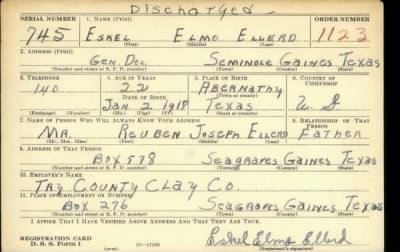 Discharged
SERIAL NUMBER 1. NAME (Print) ORDER NUMBER
745 ESKEL ELMO ELLERD 1123
(First) (Middle) (Last)
2. ADDRESS (Print)
GEN. DEL SEMINOLE GAINES TEXAS
(Number and street or R. F. D. number) (Town) (County) (State)
3. TELEPHONE 4. AGE IN YEARS 5. PLACE OF BIRTH 6. COUNTRY OF CITIZENSHIP
140 22 ABERNATHY
DATE OF BIRTH (Town or county)
JAN 2 1918 TEXAS U. S
(Exchange) (Number) (Mo.) (Day) (Yr.) (State or country)
7. NAME OF PERSON WHO WILL ALWAYS KNOW YOUR ADDRESS 8. RELATIONSHIP OF THAT PERSON
MR. REUBEN JOSEPH ELLERD FATHER
(Mr., Mrs., Miss) (First) (Middle) (Last)
9. ADDRESS OF THAT PERSON
BOX 578 SEAGRAPES GAINES TEXAS
(Number and street or R. F. D. number) (Town) (County) (State)
10. EMPLOYER'S NAME
COUNTY CLAY CO.
11. PLACE OF EMPLOYMENT OR BUSINESS
BOX 276 SEAGRAPES GAINES TEXAS
(Number and street or R. F. D. number) (Town) (County) (State)
I AFFIRM THAT I HAVE VERIFIED ABOVE ANSWERS AND THAT THEY ARE TRUE.
REGISTRATION CARD
D. S. S. Form 1 16—17105 Eskel Elmo Ellerd